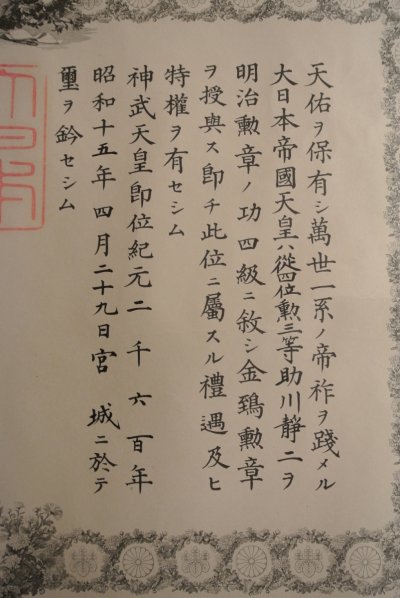 天佑ヲ保有シ萬世一系ノ帝祚ヲ踐メル
大日本帝國天皇ハ從四位勲三等助川靜二ヲ
明治勲章ノ功四級ニ敘シ金鵄勲章
ヲ授與ス即チ此位ニ屬スル禮遇及ヒ
特權ヲ有セシム
神武天皇即位紀元二千六百年
昭和十五年四月二十九日宮城ニ於テ
璽ヲ鈐セシム